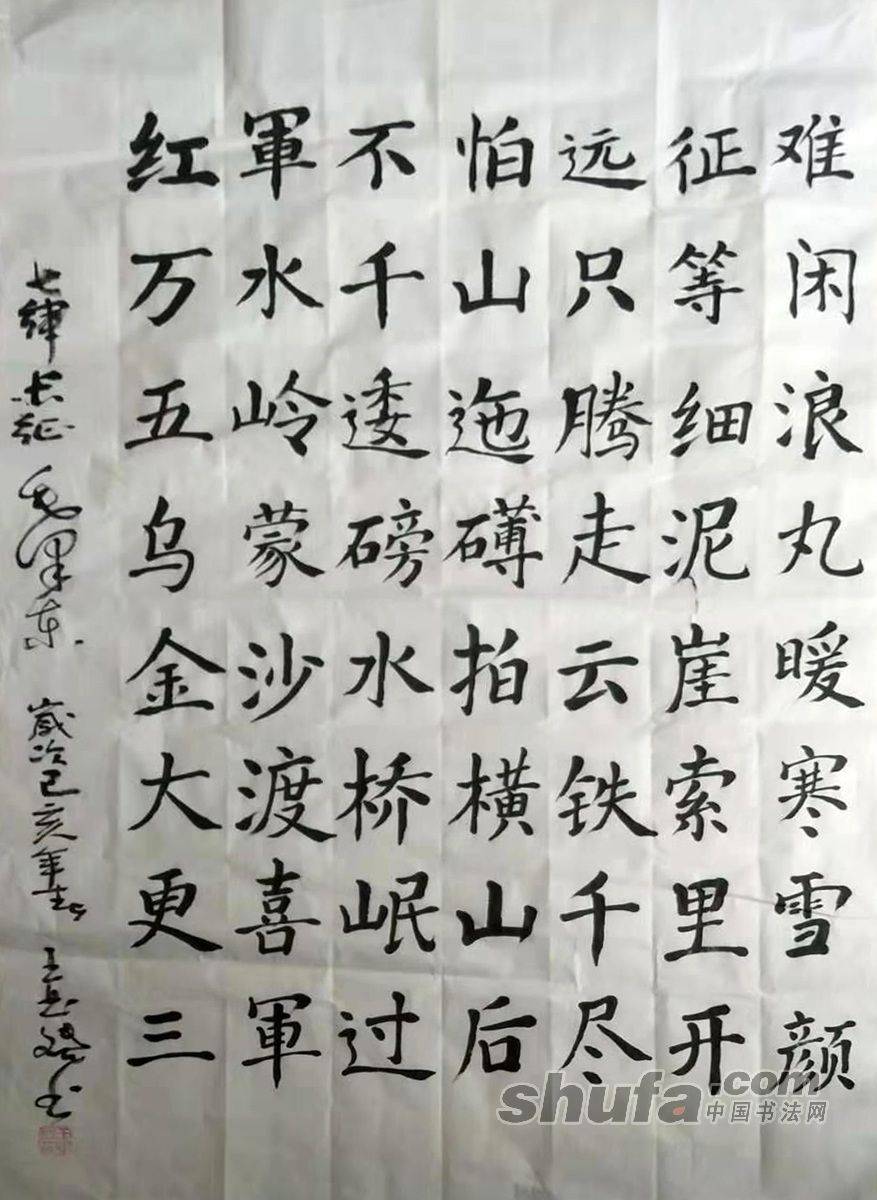 红軍不怕远征难
万水千山只等闲
五岭逶迤腾细浪
乌蒙磅礴走泥丸
金沙水拍云崖暖
大渡桥横铁索寒
更喜岷山千里雪
三軍过后尽开颜
七律 长征 毛泽东 岁次己亥年 王 书
shufa.com
中国书法网